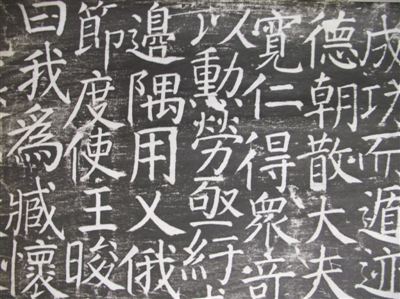 成功而遁迹
德朝散大夫
寬仁得衆奇
以勳勞亟紆
邊隅用乂俄
節度使王晙
曰我爲臧懷